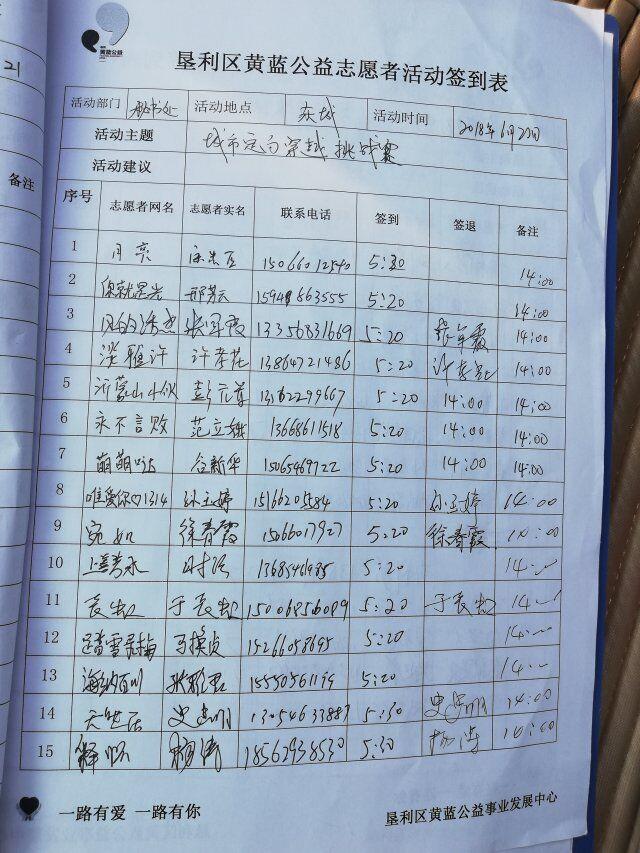 黄蓝公益
21
备注
垦利区黄蓝公益志愿者活动签到表
活动部门 秘书处 活动地点 东城 活动时间 2018年6月20日
活动主题 城市定向穿越挑战赛
活动建议
序号 志愿者网名 志愿者实名 联系电话 签到 签退 备注
1 月亮 15066012540 5:20 14:00
2 你就是光 邢芳云 15948863555 5:20 14:00
3 张军霞 13356831669 5:20 张军霞 14:00
4 淡雅许 许孝花 13864721486 5:20 许孝花 14:00
5 沂蒙山小伙 彭元尊 13162299667 5:20 14:00 14:00
6 永不言败 范立娥 13668611518 5:20 14:00 14:00
7 萌萌哒 谷新华 15065469722 5:20 14:00 14:00
8 唯爱你♡1314 孙玉婷 15166205584 5:20 孙玉婷 14:00
9 宛如 徐青霞 15066017927 5:20 徐青霞 14:00
10 上善若水 13685461985 5:20 14:~
11 长虹 于长虹 15006856089 5:20 于长虹 14:~
12 踏雪寻梅 马换贞 15266058695 5:20 14:~
13 海纳百川 张雅君 5:20 14:~
14 天生活 史忠明 13054633887 5:30 史忠明 14:00
15 释怀 杨涛 18562938530 5:30 杨涛 14:00
一路有爱 一路有你 垦利区黄蓝公益事业发展中心